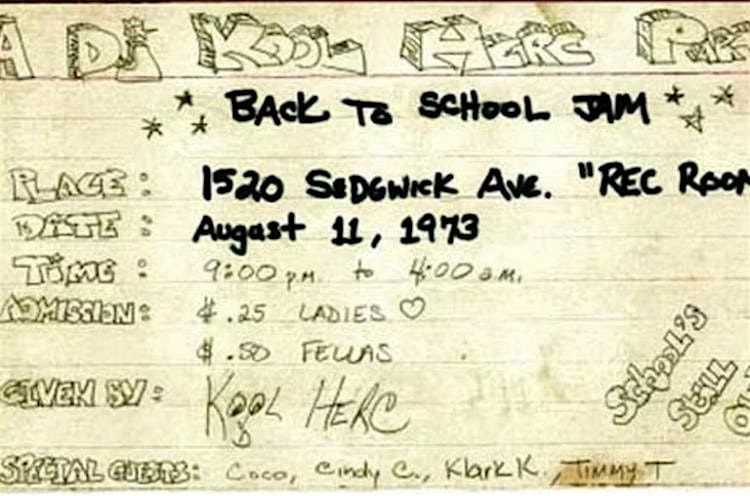 A DJ KOOL HERC PAR
BACK TO SCHOOL JAM
PLACE: 1520 SEDGWICK AVE. "REC ROOM
DATE: August 11, 1973
TIME: 9:00 P.M. to 4:00 a.m.
ADMISSION: $.25 LADIES ♡
$.50 FELLAS
GIVEN BY: KOOL HERC
SPECIAL GUESTS: Coco, Cindy C., Klark K., TIMMY T
SCHOOL'S
STILL